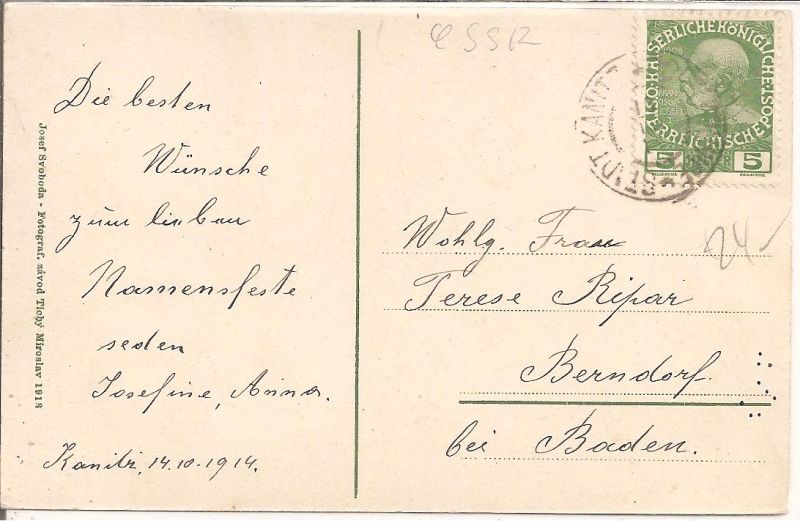 Die besten
Wünsche
zum lieben
Namensfeste
seden
Josefine, Anna.
Kanitz, 14.10.1914.
Josef Svoboda - Fotograf. závod Tichý Miroslav 1913
ČSSR
KAISERLICHEKÖNIGLICHE
ÖSTERREICHISCHE
POST
1908
FRANZ
JOSEPH
5 HELLER 5
STADT KANITZ
24
Wohlg. Frau
Terese Ripar
Berndorf.
bei Baden.